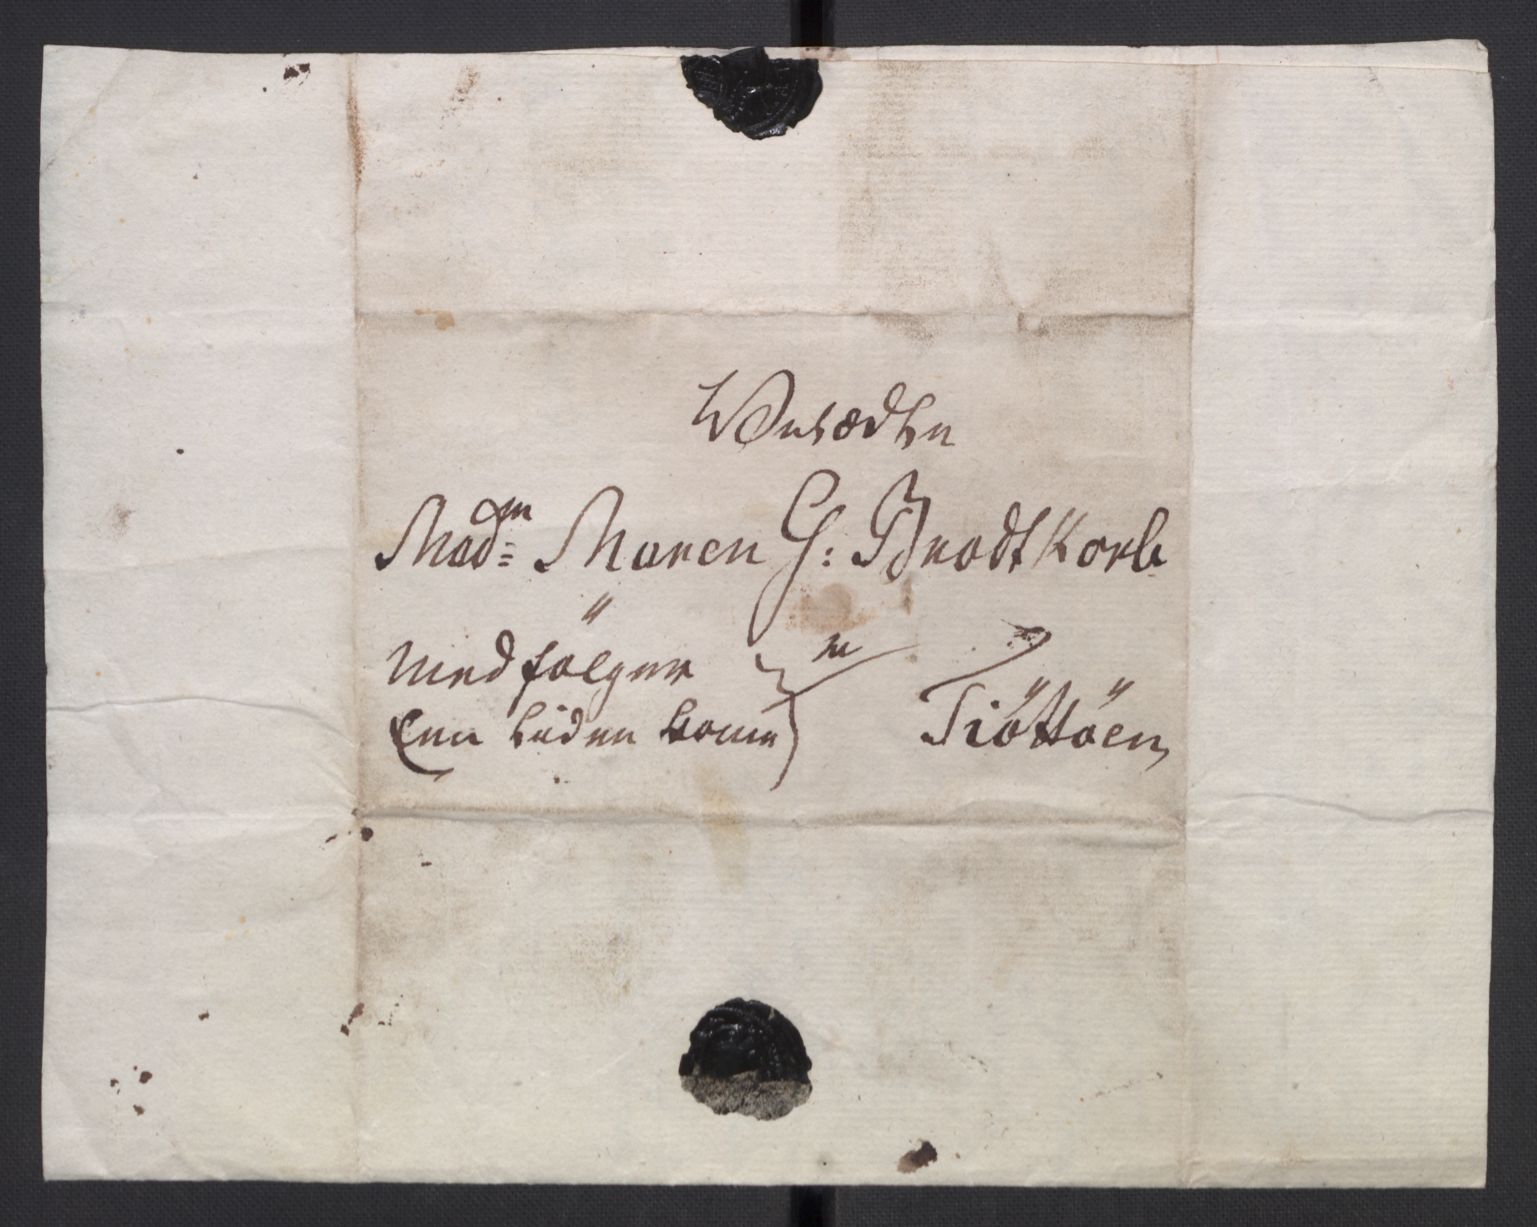 Velædle
Madm: Maren G: Brodtkorb
medfölger
Een liden
Tiöttöen